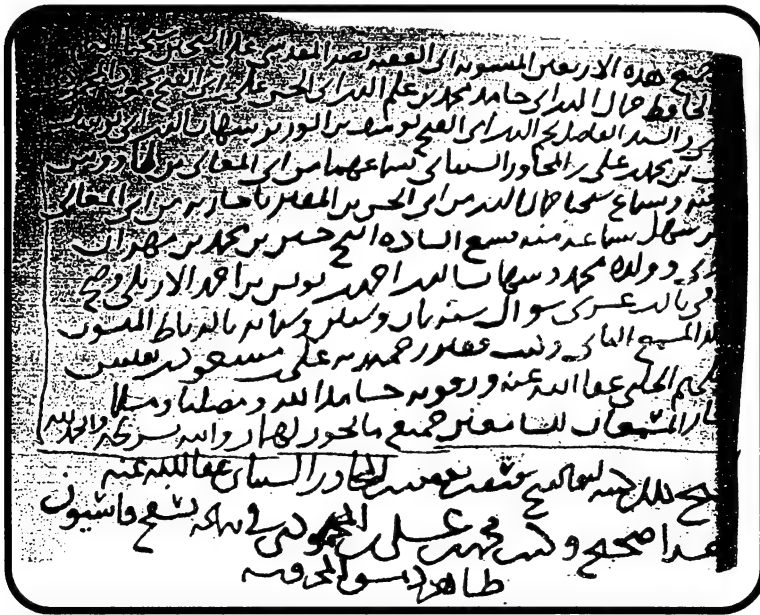 جميع هذه الاربعين المنسوبة الى الفقيه نصر المقدسي على الشيخين شيخنا
الحافظ جمال الدين ابي حامد محمد بن علم الدين ابي الحسن علي بن ابي الفتح محمود
والسيد الفاضل نجم الدين ابي الفتح يوسف بن شهاب الدين ابي يوسف
بن محمد بن علي بن المجاور الشيباني بسماعهما من ابي المعالي بن
عنه وبسماع شيخنا جمال الدين من ابي الحسن بن المقير باجازته من ابي المعالي
بن سهل بسماعه منه فسمع السادة الشيخ حسين بن محمد بن مهران
وولده محمد وشهاب الدين احمد بن يونس بن احمد الاربلي وصح
في ثالث عشري شوال سنة ثمان وستين وستمائة بالرباط المنسوب
وكتب فقير رحمة ربه علي بن مسعود بن نفيس
الحلبي عفا الله عنه ورفق به حامدا لله ومصليا ومسلما
المسمعان للسامعين جميع ما يجوز لهما روايته بشرطه والحمد لله
صحيح ذلك كتبه يعقوب بن المجاور الشيباني عفا الله عنه
هذا صحيح وكتب محمد بن علي المحمودي بسفح قاسيون
ظاهر دمشق المحروسة